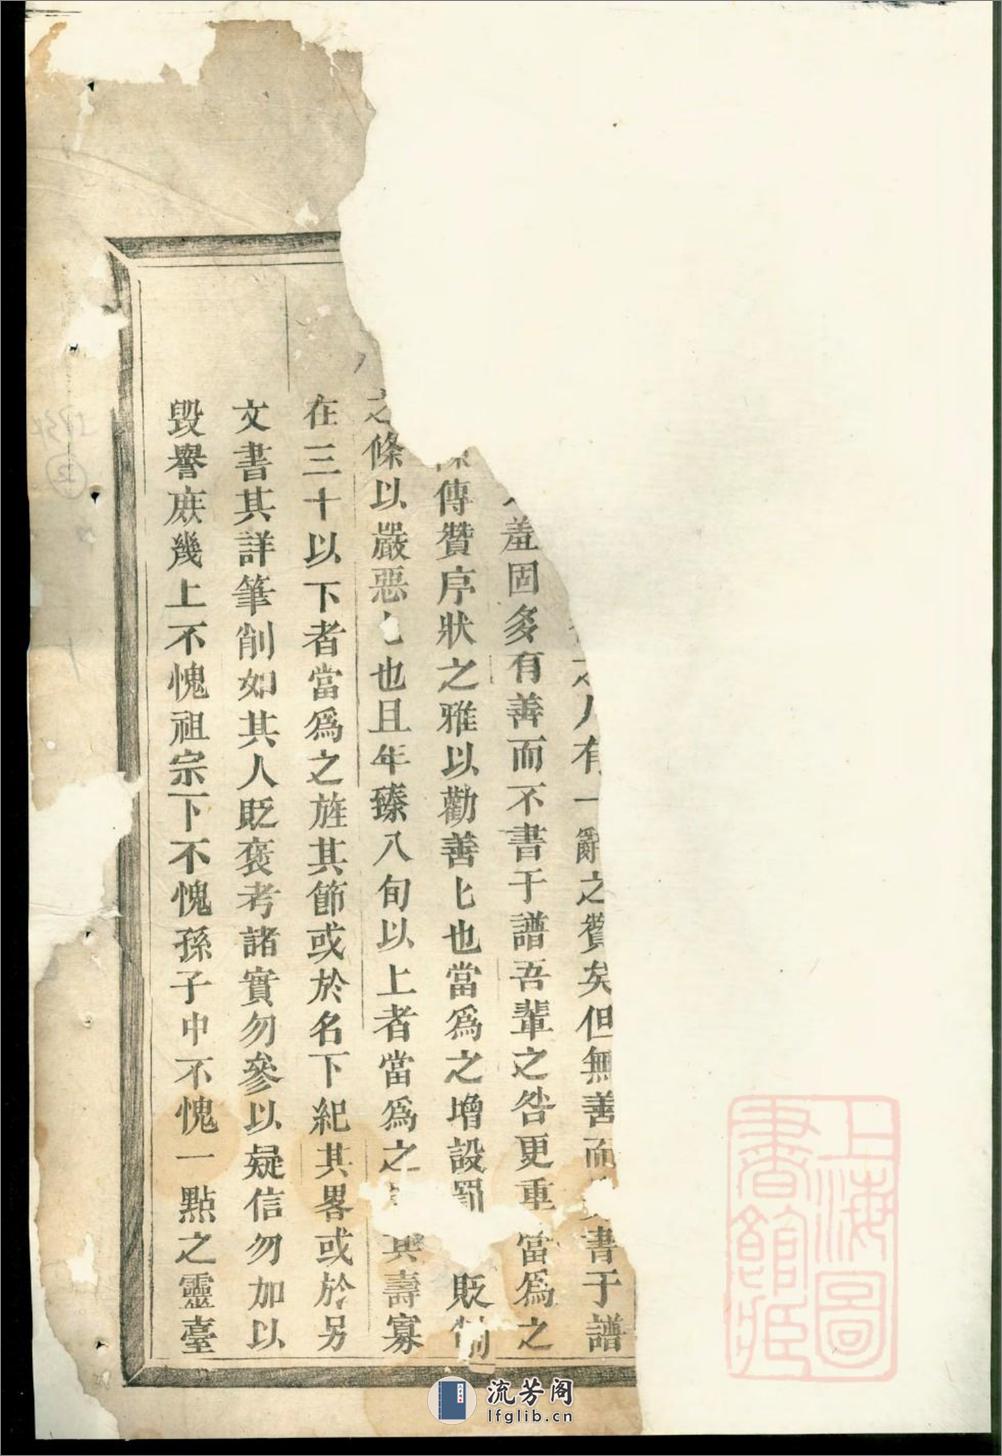 之人有一辭之贊矣但無善而書于譜
羞固多有善而不書于譜吾輩之咎更重當爲之
傳贊序狀之雅以勸善匕也當爲之增設罰貶制
之條以嚴惡匕也且年臻八旬以上者當爲之其壽寡
在三十以下者當爲之旌其節或於名下紀其畧或於另
文書其詳筆削如其人貶褒考諸實勿參以疑信勿加以
毀譽庻幾上不愧祖宗下不愧孫子中不愧一點之靈臺
上海圖書館藏
流芳阁
lfglib.cn